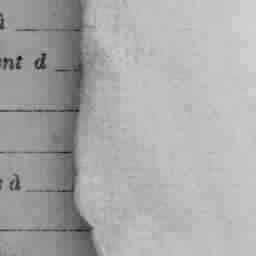 à
ent d
à